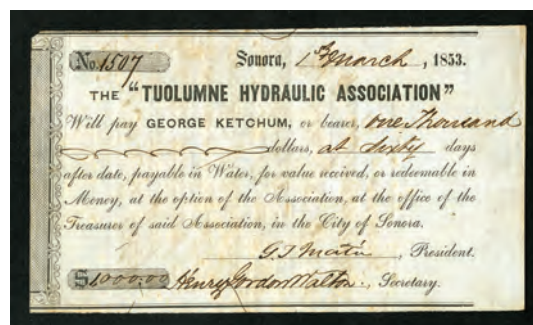 No. 1507 Sonora, 1st March, 1853.
THE "TUOLUMNE HYDRAULIC ASSOCIATION"
Will pay GEORGE KETCHUM, or bearer, One Thousand
dollars, at Sixty days
after date, payable in Water, for value received, or redeemable in
Money, at the option of the Association, at the office of the
Treasurer of said Association, in the City of Sonora.
G. S. , President.
$1000.00 Henry Gordon Walton, Secretary.